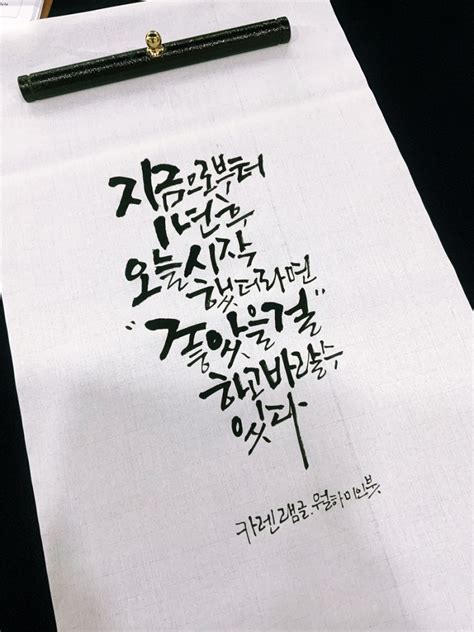 지금으로부터
1년후
오늘 시작
했더라면
"좋았을걸"
하고 바랄수
있다
카렌 램글. 월하미인붓.